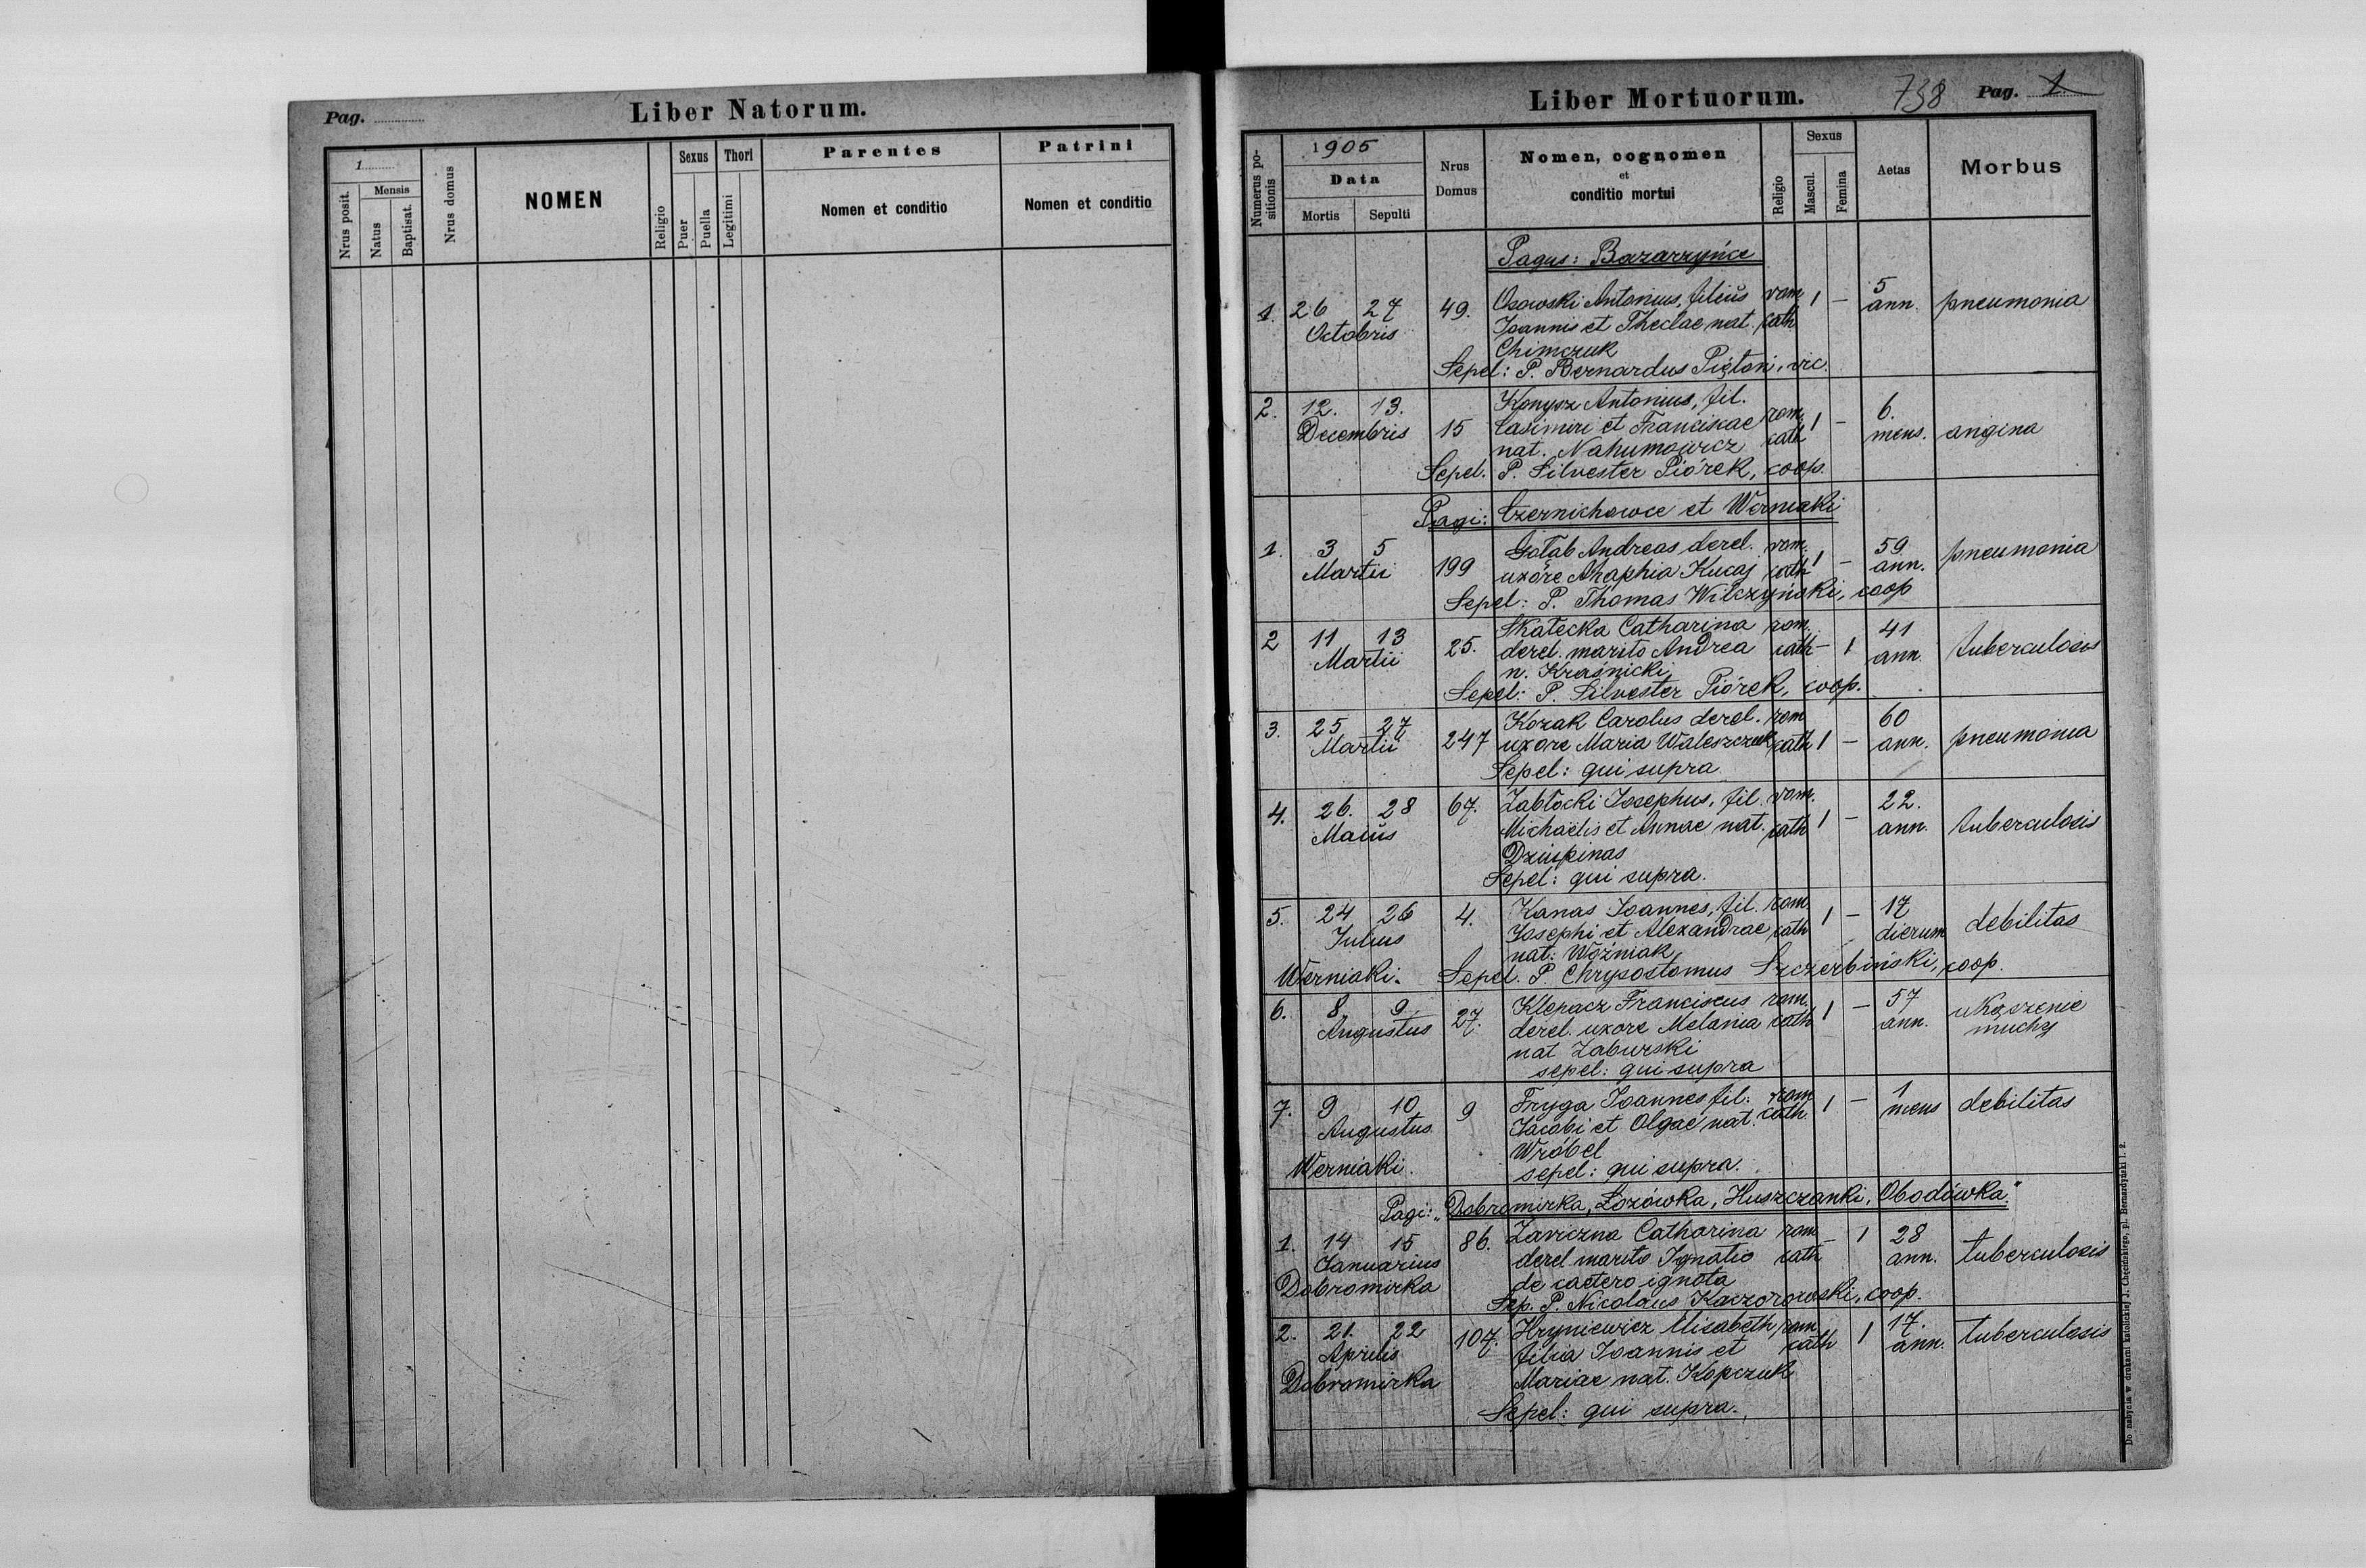 Pag. ..............
Liber Natorum.
1..........
Nrus posit.
Mensis
Natus
Baptisat.
Nrus domus
NOMEN
Religio
Sexus
Puer
Puella
Thori
Legitimi
Parentes
Nomen et conditio
Patrini
Nomen et conditio
Liber Mortuorum.
738
Pag. 1
Numerus positionis
1905
Data
Mortis
Sepulti
Nrus Domus
Nomen, cognomen
et
conditio mortui
Religio
Sexus
Mascul.
Femina
Aetas
Morbus
Pagus: Bazarzyńce
1. 26 27 49. Osowski Antonius, filius rom. 1 – 5 ann. pneumonia
Octobris Joannis et Theclae nat. cath
Chimczuk
Sepel: P. Bernardus Piętoń, vic.
2. 12. 13. Konysz Antonius, fil.
Decembris 15 Casimiri et Franciscae rom. cath 1 – 6. mens. angina
nat. Nahumowicz
Sepel. P. Silvester Piórek, coop.
Pagi: Czernichowce et Werniaki
1. 3 5 Gołąb Andreas derel. rom. 59 pneumonia
Martii 199 uxore Ahaphia Kucaj cath 1 – ann.
Sepel: P. Thomas Wilczyński, coop
2 11 13 Skałecka Catharina rom. 41
Martii 25. derel. marito Andrea cath – 1 ann. tuberculosis
n. Kraśnicki
Sepel: P. Silvester Piórek, coop.
3. 25 27 Kozak Carolus derel. rom 60
Martii 247 uxore Maria Waleszczuk cath 1 – ann. pneumonia
Sepel: qui supra
4. 26. 28 67. Zabłocki Josephus, fil. rom. 22.
Maius Michaëlis et Annae nat. cath 1 – ann. tuberculosis
Dziupinas
Sepel: qui supra.
5. 24 26 4. Kanas Joannes, fil. rom. 1 – 17
Julius Josephi et Alexandrae cath dierum debilitas
nat: Woźniak
Werniaki. Sepel. P. Chrysostomus Szczerbiński, coop.
6. 8 9 27. Klepacz Franciscus rom. 1 – 57 ukąszenie
Augustus derel. uxore Melania cath ann. muchy
nat Zaburski
sepel: qui supra
7. 9 10 9 Fryga Joannes fil: rom 1 – 1 mens debilitas
Augustus Jacobi et Olgae nat. cath.
Wróbel
Werniaki. sepel: qui supra.
Pagi: „Dobromirka, Łozówka, Huszczanki, Obodówka."
1. 14 15 86. Zaviczna Catharina rom – 1 28
Januarius derel marito Ignatio cath ann. tuberculosis
Dobromirka de caetero ignota
Sep. P. Nicolaus Kaczorowski, coop.
2. 21. 22 107. Hryniewicz Elisabeth rom 1 17. tuberculosis
Aprilis filia Joannis et cath ann.
Dobromirka Mariae nat. Kopczuk
Sepel: qui supra.
Do nabycia w drukarni katolickiej J. Chęcińskiego, pl. Bernardyński l. 2.